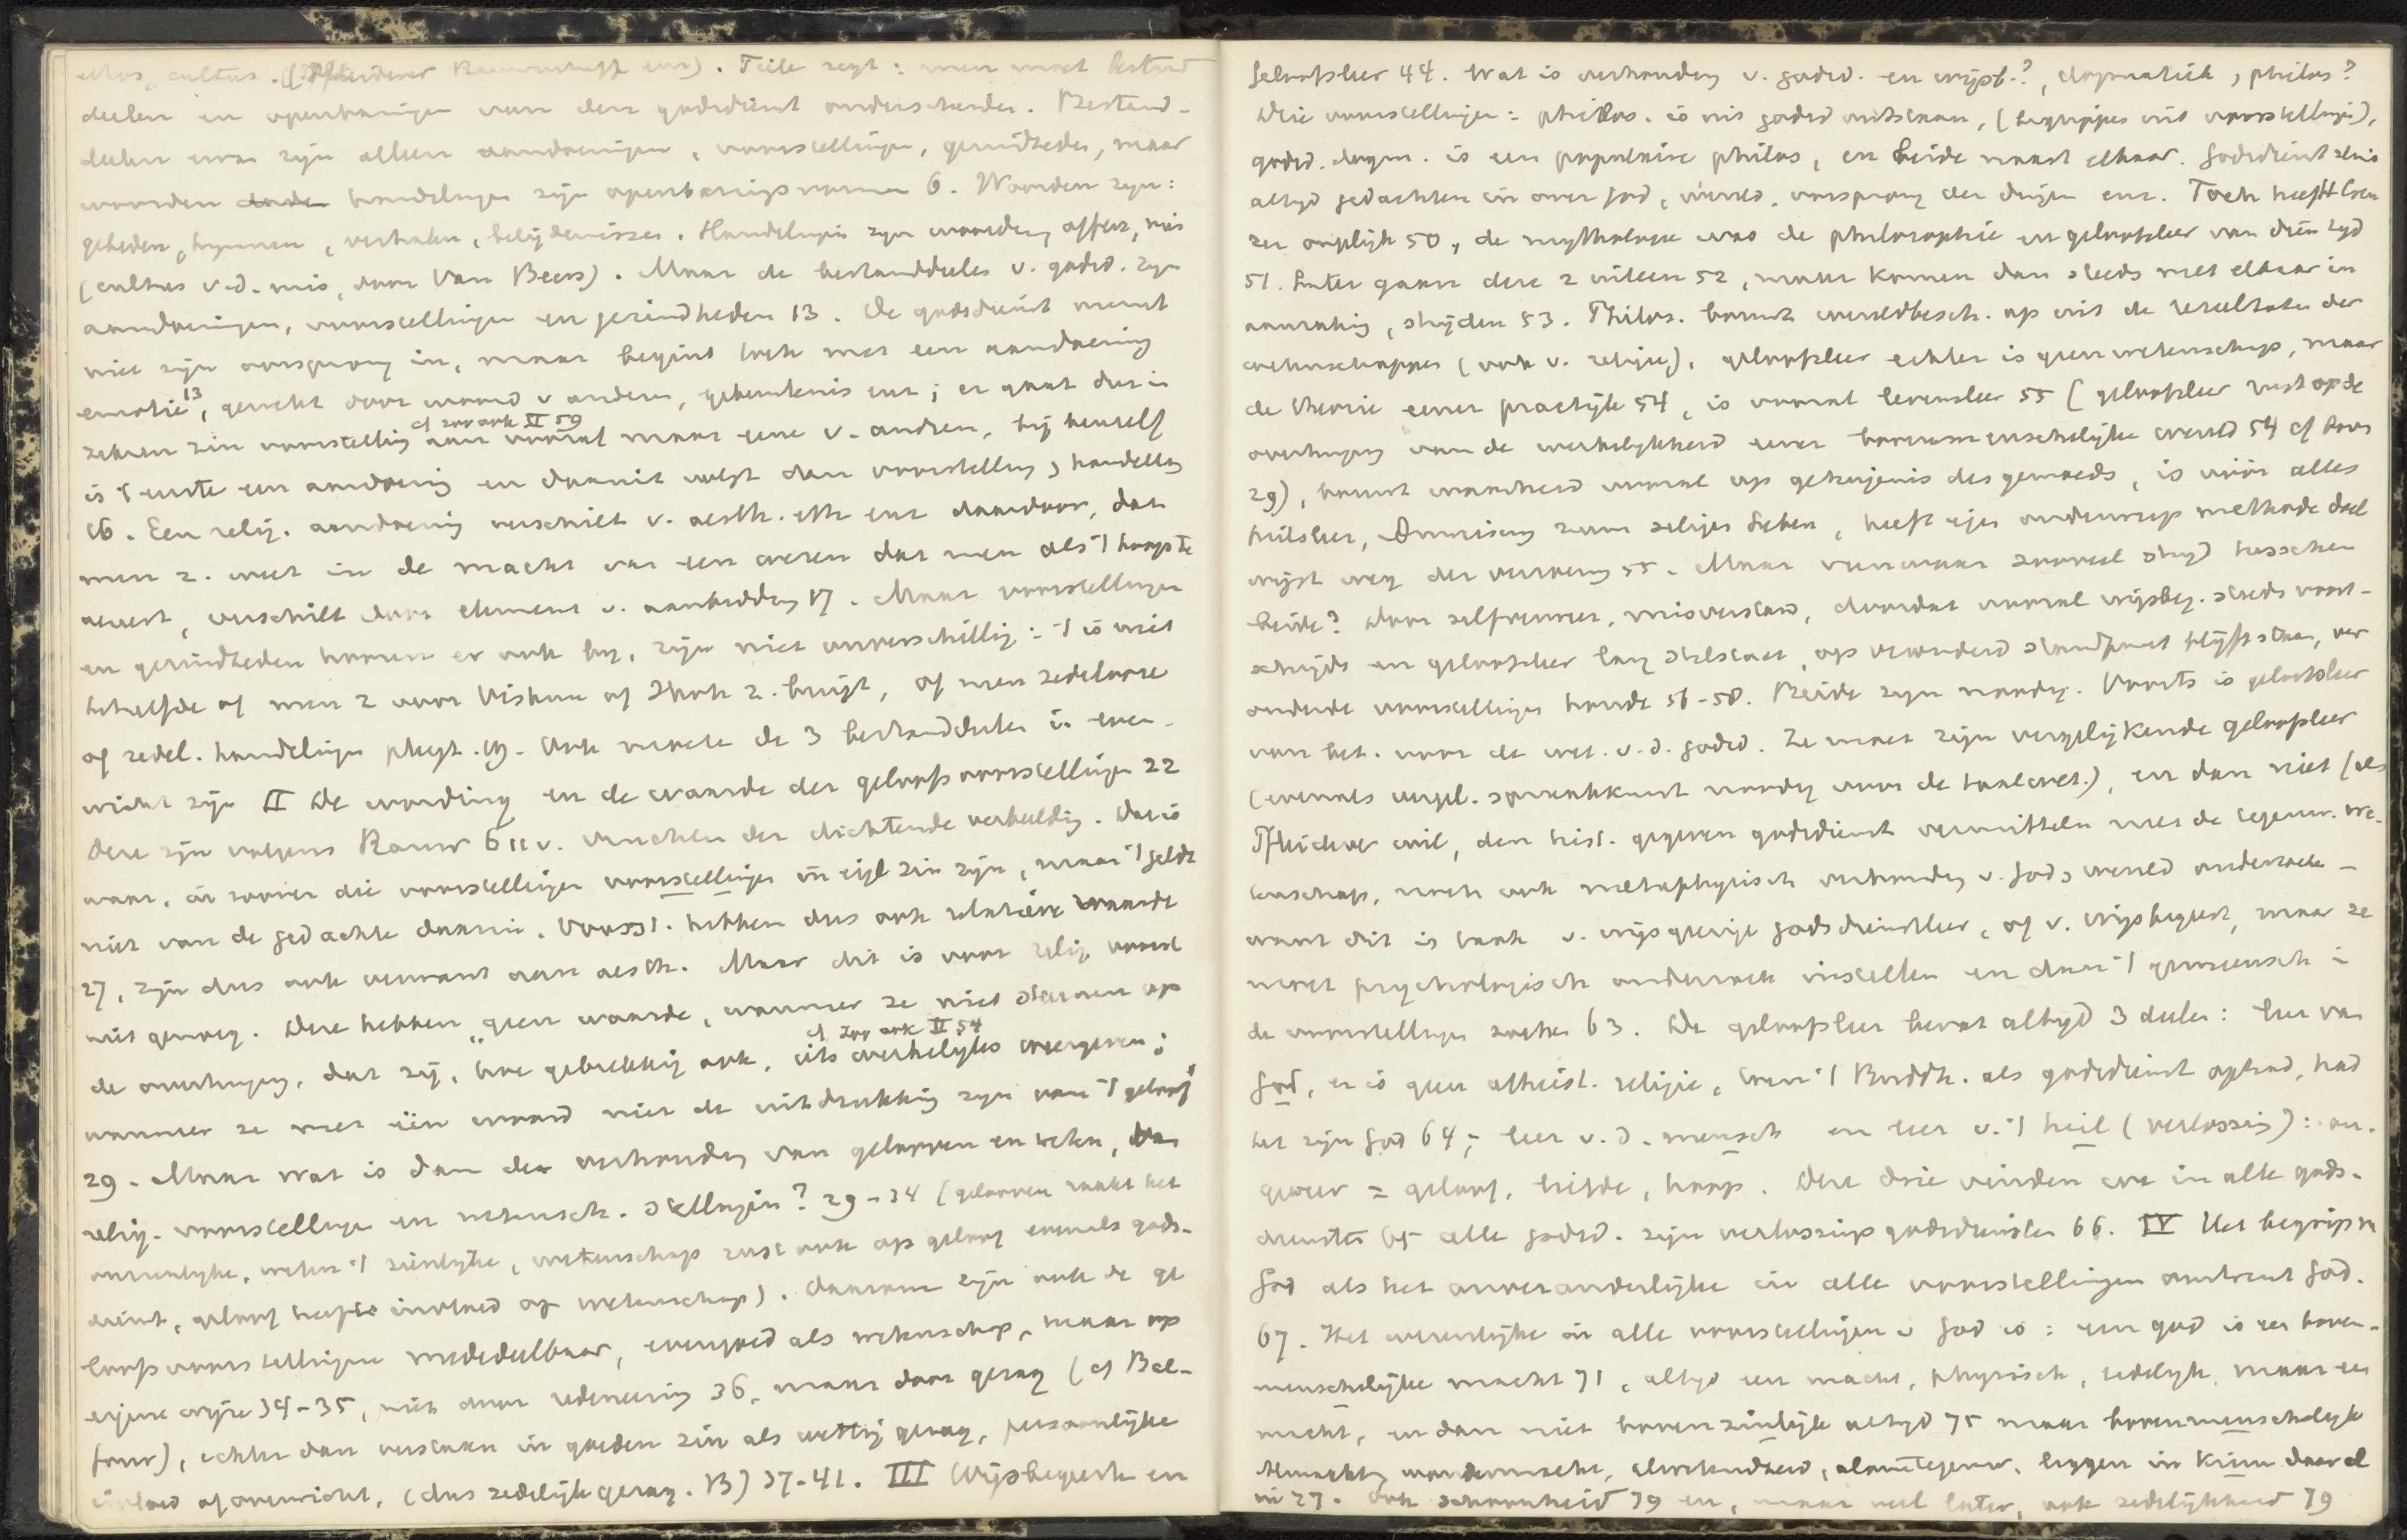 ethos, cultus. (Pfleiderer Rauwenhoff enz). Tiele zegt: men moet bestand
deelen en openbaringen van den godsdienst onderscheiden. Bestand-
deelen ervan zijn alleen aandoeningen, voorstellingen, gezindheden, maar
woorden handelingen zijn openbaringsvormen 6. Woorden zijn:
gebeden, hymnen, verhalen, belijdenissen. Handelingen zijn offers, mis
(cultus v.d. mis, door Van Beers). Maar de bestanddeelen v. godsd. zijn
aandoeningen, voorstellingen en gezindheden 13. De godsdienst neemt
niet zijn oorsprong in, maar begint toch met een aandoening
emotie 13, gewekt door woord v anderen, gebeurtenis enz; er gaat dus in
zekeren zin voorstelling aan vooraf maar eene v. andren, bij henzelf
cf zoo ook II 59
is 't eerste een aandoening en daaruit volgt dan voorstelling, handeling
16. Een relig. aandoening verschilt v. aesth. eth enz daardoor, dat
men z. weet in de macht van een wezen dat men als 't hoogste
vereert, verschilt door element v. aanbidding 17. Maar voorstellingen
en gezindheden komen er ook bij, zijn niet onverschillig: 't is niet
hetzelfde of men z voor Vishnu of Thor z. buigt, of men zedelooze
of zedel. handelingen pleegt. 19. Ook moeten de 3 bestanddeelen in even-
wicht zijn II De wording en de waarde der geloofsvoorstellingen 22
Deze zijn volgens Rauw 611 v. vruchten der dichtende verbeelding. Dat is
waar, in zoover die voorstellingen voorstellingen in eigl zin zijn, maar 't geldt
niet van de gedachte daarin. Voorst. hebben dus ook relatieve waarde
27, zijn dus ook verwant aan aesth. Maar dit is voor relig. voorst
niet genoeg. Deze hebben geen waarde, wanneer ze niet steunen op
cf Zoo ook II 54
de overtuiging, dat zij, hoe gebrekkig ook, iets werkelijks weergeven;
wanneer ze met één woord niet de uitdrukking zijn van 't geloof
29. Maar wat is dan de verhouding van gelooven en weten, van
relig. voorstellingen en wetensch. stellingen? 29-34 (gelooven raakt het
onzienlijke, weten 't zienlijke, wetenschap rust ook op geloof evenals gods-
dienst, geloof heeft invloed op wetenschap). Daarom zijn ook de ge
loofsvoorstellingen mededeelbaar, evengoed als wetenschap, maar op
eigene wijze 34-35, niet door redeneering 36, maar door gezag (cf Bal-
four), echter dan verstaan in goeden zin als wettig gezag, persoonlijke
invloed of overwicht, (dus zedelijk gezag. B) 37-41. III Wijsbegeerte en
geloofsleer 44. Wat is verhouding v. godsd. en wijsb.?, dogmatiek, philos?
Drie voorstellingen: philos. is uit godsd ontstaan, (begrippen uit voorstellingen),
godsd. dogm. is een populaire philos, en beide naast elkaar. Godsdienst sluit
altijd gedachten in over God, wereld, oorsprong der dingen enz. Toch heeft
ze ontplijk 50, de mythologie was de philosophie en geloofsleer van dien tijd
51. Later gaan deze 2 uiteen 52, maar komen dan steeds met elkaar in
aanraking, strijden 53. Philos. bouwt wereldbesch. op uit de resultaten der
wetenschappen (ook v. religie), geloofsleer echter is geen wetenschap, maar
de theorie eener practijk 54, is vooral levensleer 55 (geloofsleer rust op de
overtuiging van de werkelijkheid eener bovenmenschelijke wereld 54 cf boven
29), bouwt waarheid vooral op getuigenis des gemoeds, is vóór alles
heilsleer, Anweisung zum seligen Leben, heeft eigen onderwerp methode doel
wijst weg der verlossing 55. Maar vanwaar zooveel strijd tusschen
beide? Door zelfvermeet, misverstand, doordat vooral wijsbeg. steeds voort-
schrijdt en geloofsleer lang stilstaat, op verouderd standpunt blijft staan, ver
ouderde voorstellingen houdt 56-58. Beide zijn noodig. Voorts is geloofsleer
van bet. voor de wet. v.d. godsd. Ze moet zijn vergelijkende geloofsleer
(evenals vergel. spraakkunst noodig voor de taalwet.), en dan niet (als
Pfleiderer wil, den hist. gegeven godsdienst vermitteln met de tegenw. we-
tenschap, noch ook metaphysisch verhouding v. God, wereld onderzoeken -
want dit is taak v. wijsgeerige godsdienstleer, of v. wijsbegeert, maar ze
moet psychologisch onderzoek instellen en daar 't gemeensch in
de voorstellingen zoeken 63. De geloofsleer bevat altijd 3 deelen: leer van
God, er is geen atheist. religie, toen 't Buddh. als godsdienst optrad, had
het zijn God 64; leer v.d. mensch en leer v. 't heil (verlossing): on-
geveer = geloof, liefde, hoop. Deze drie vinden we in alle gods-
diensten 65 alle godsd. zijn verlossingsgodsdiensten 66. IV Het begrip v
God als het onveranderlijke in alle voorstellingen omtrent God.
67. Het wezenlijke in alle voorstellingen v God is: een god is een boven-
menschelijke macht 71, altijd een macht, physisch, zedelijk, maar een
macht, en dan niet bovenzinlijk altijd 75 maar bovenmenschelijk
Almachtig wondermacht, alwetendheid, alomtegenw. liggen in kiem daar al
in 77. Ook schoonheid 79 en, maar veel later, ook zedelijkheid 79